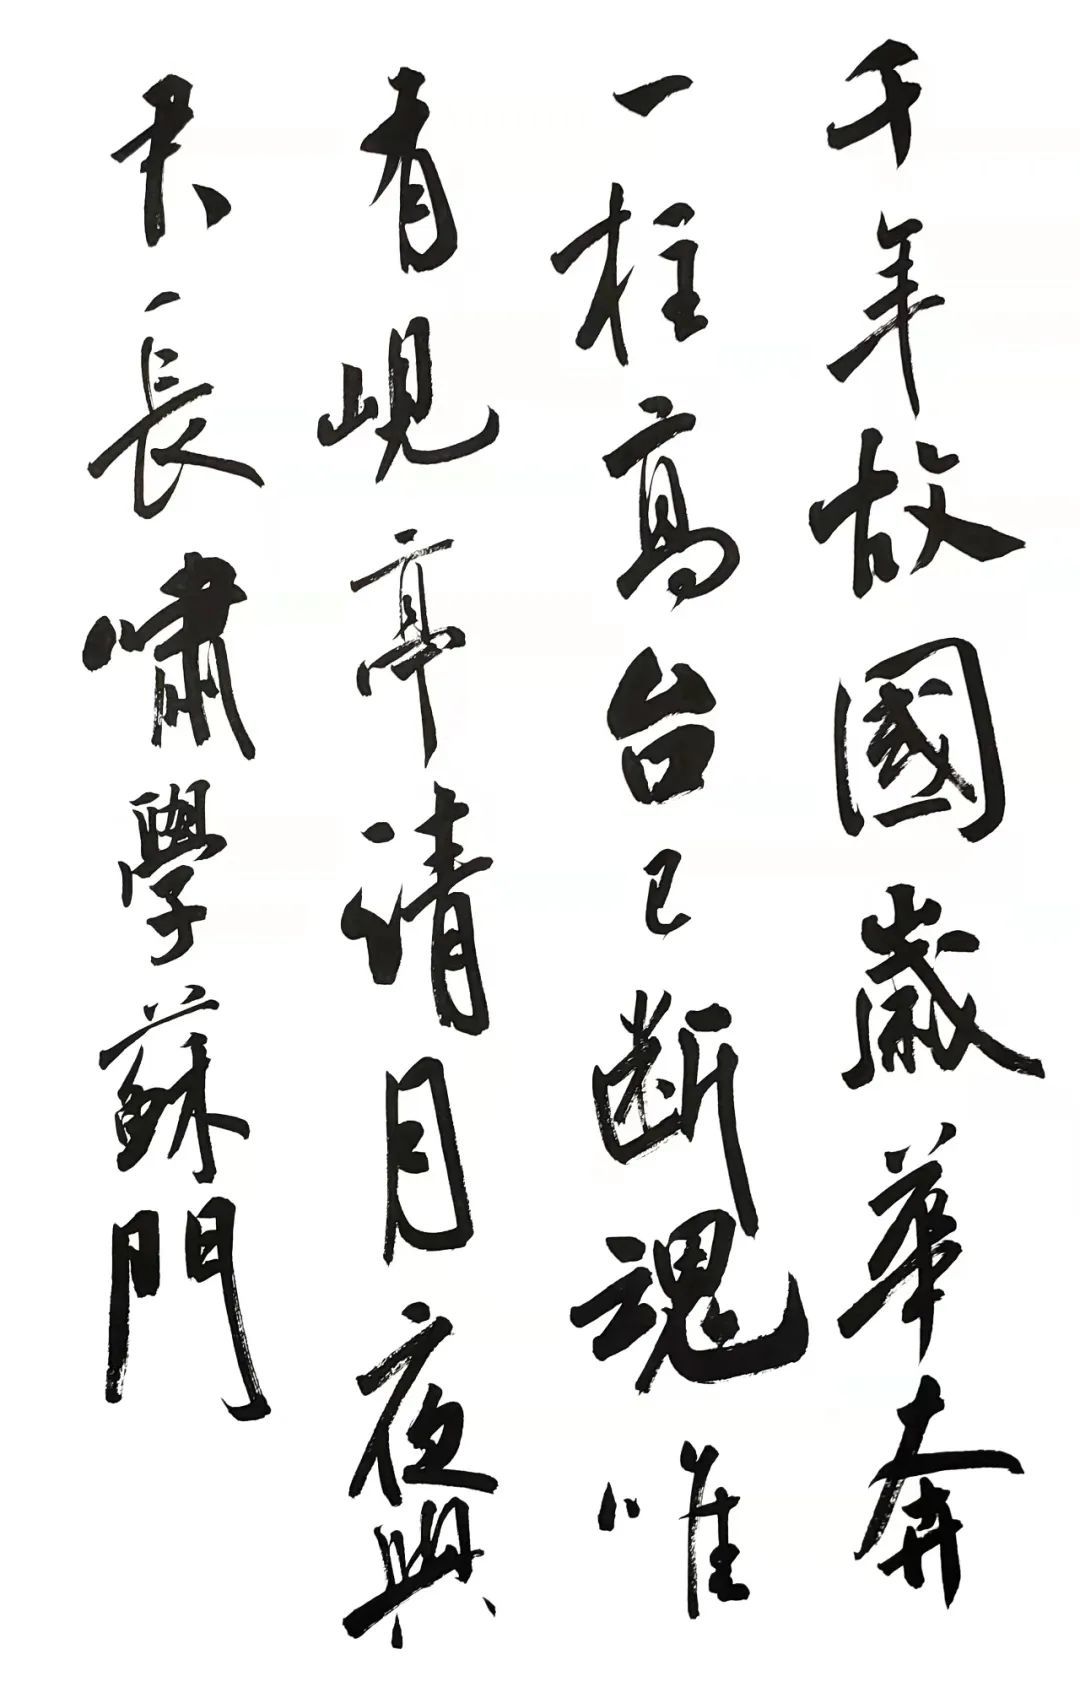 千年故國歲華奔
一柱高台已断魂唯
有峴亭清月夜與
君長嘯學蘇門